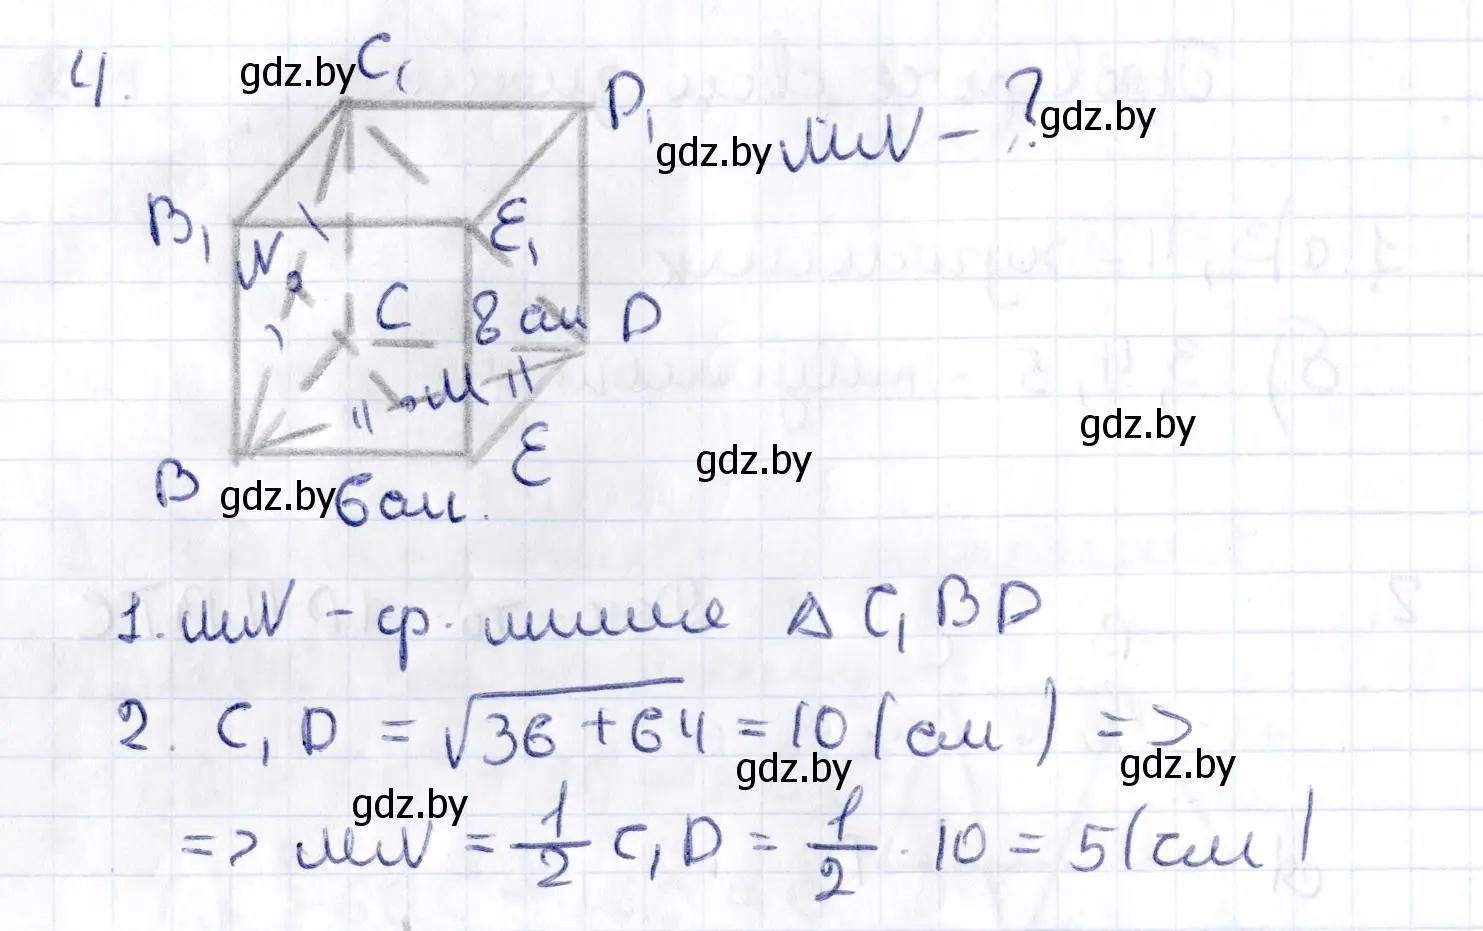 4.
gdz.by C₁
D₁
gdz.by MN - ? gdz.by
B₁ N E₁
C 8 см D
M
gdz.by
B E gdz.by
gdz.by 6 см.
1. MN - ср. линия △ C₁BD
2. C₁D = √36+64 = 10 (см) =>
gdz.by gdz.by
gdz.by
=> MN = 1/2 C₁D = 1/2 · 10 = 5 (см)